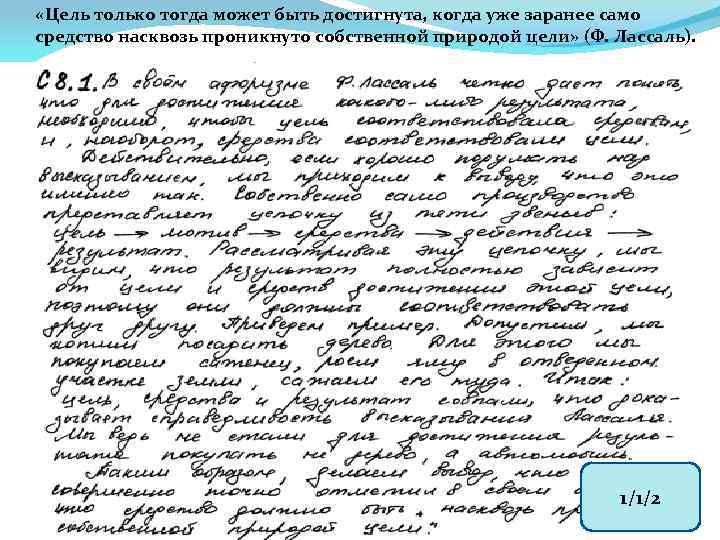 «Цель только тогда может быть достигнута, когда уже заранее само
средство насквозь проникнуто собственной природой цели» (Ф. Лассаль).
С8.1. В своём афоризме Ф. Лассаль четко дает понять,
что для достижения какого-либо результата,
необходимо, чтобы цель соответствовала средствам,
и, наоборот, средства соответствовали цели.
Действительно, если хорошо подумать над
высказыванием, мы приходим к выводу, что это
именно так. Собственно само производство
представляет цепочку из пяти звеньев:
цель → мотив → средства → действия →
результат. Рассматривая эту цепочку, мы
видим, что результат полностью зависит
от цели и средств достижения этой цели,
поэтому они должны соответствовать
друг другу. Приведем пример. Допустим, мы
хотим посадить дерево. Для этого мы
покупаем саженец, роем яму в отведенном
участке земли, сажаем его туда. Итак:
цель, средства и результат совпали, что дока-
зывает справедливость высказывания Лассаля.
Мы ведь не стали для достижения резуль-
тата покупать не дерево, а автомобиль.
Таким образом, делаем вывод, что
совершенно точно отметил в своем
что средство должно быть насквозь
собственной природой цели."
1/1/2